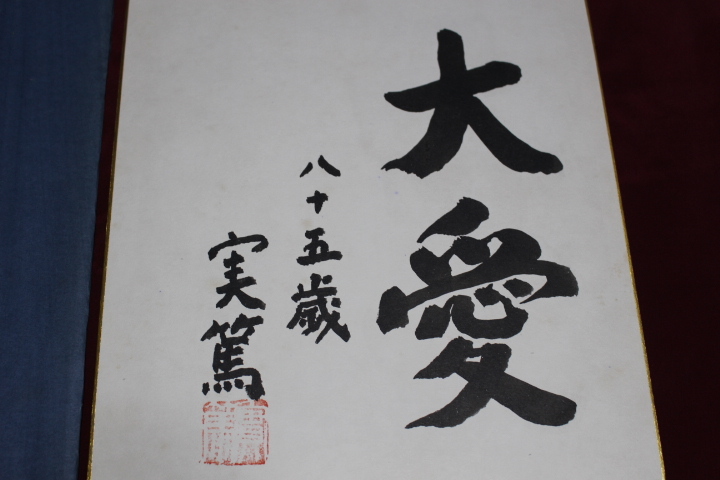 大愛
八十五歳
実篤